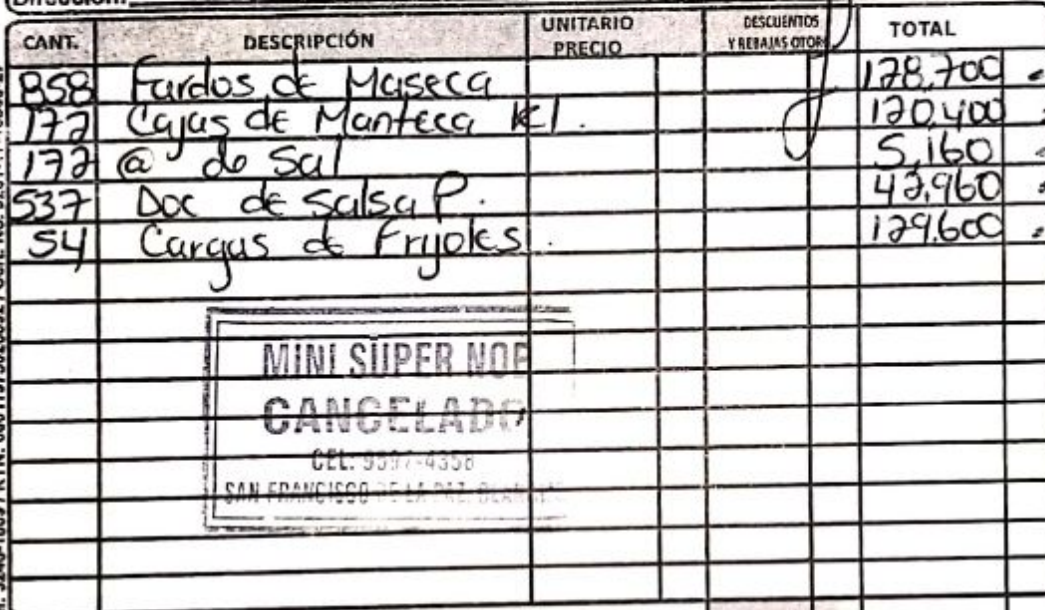 Dirección:
CANT. DESCRIPCIÓN UNITARIO PRECIO DESCUENTOS Y REBAJAS OTOR TOTAL
858 Fardos de Maseca 128,700
172 Cajas de Manteca Kl. 120,400
172 @ de Sal 5,160
537 Doc de Salsa P. 42,960
54 Cargas de Frijoles. 129.600
MINI SUPER NOE
CANCELADO
CEL: 9597-4358
SAN FRANCISCO DE LA PAZ,